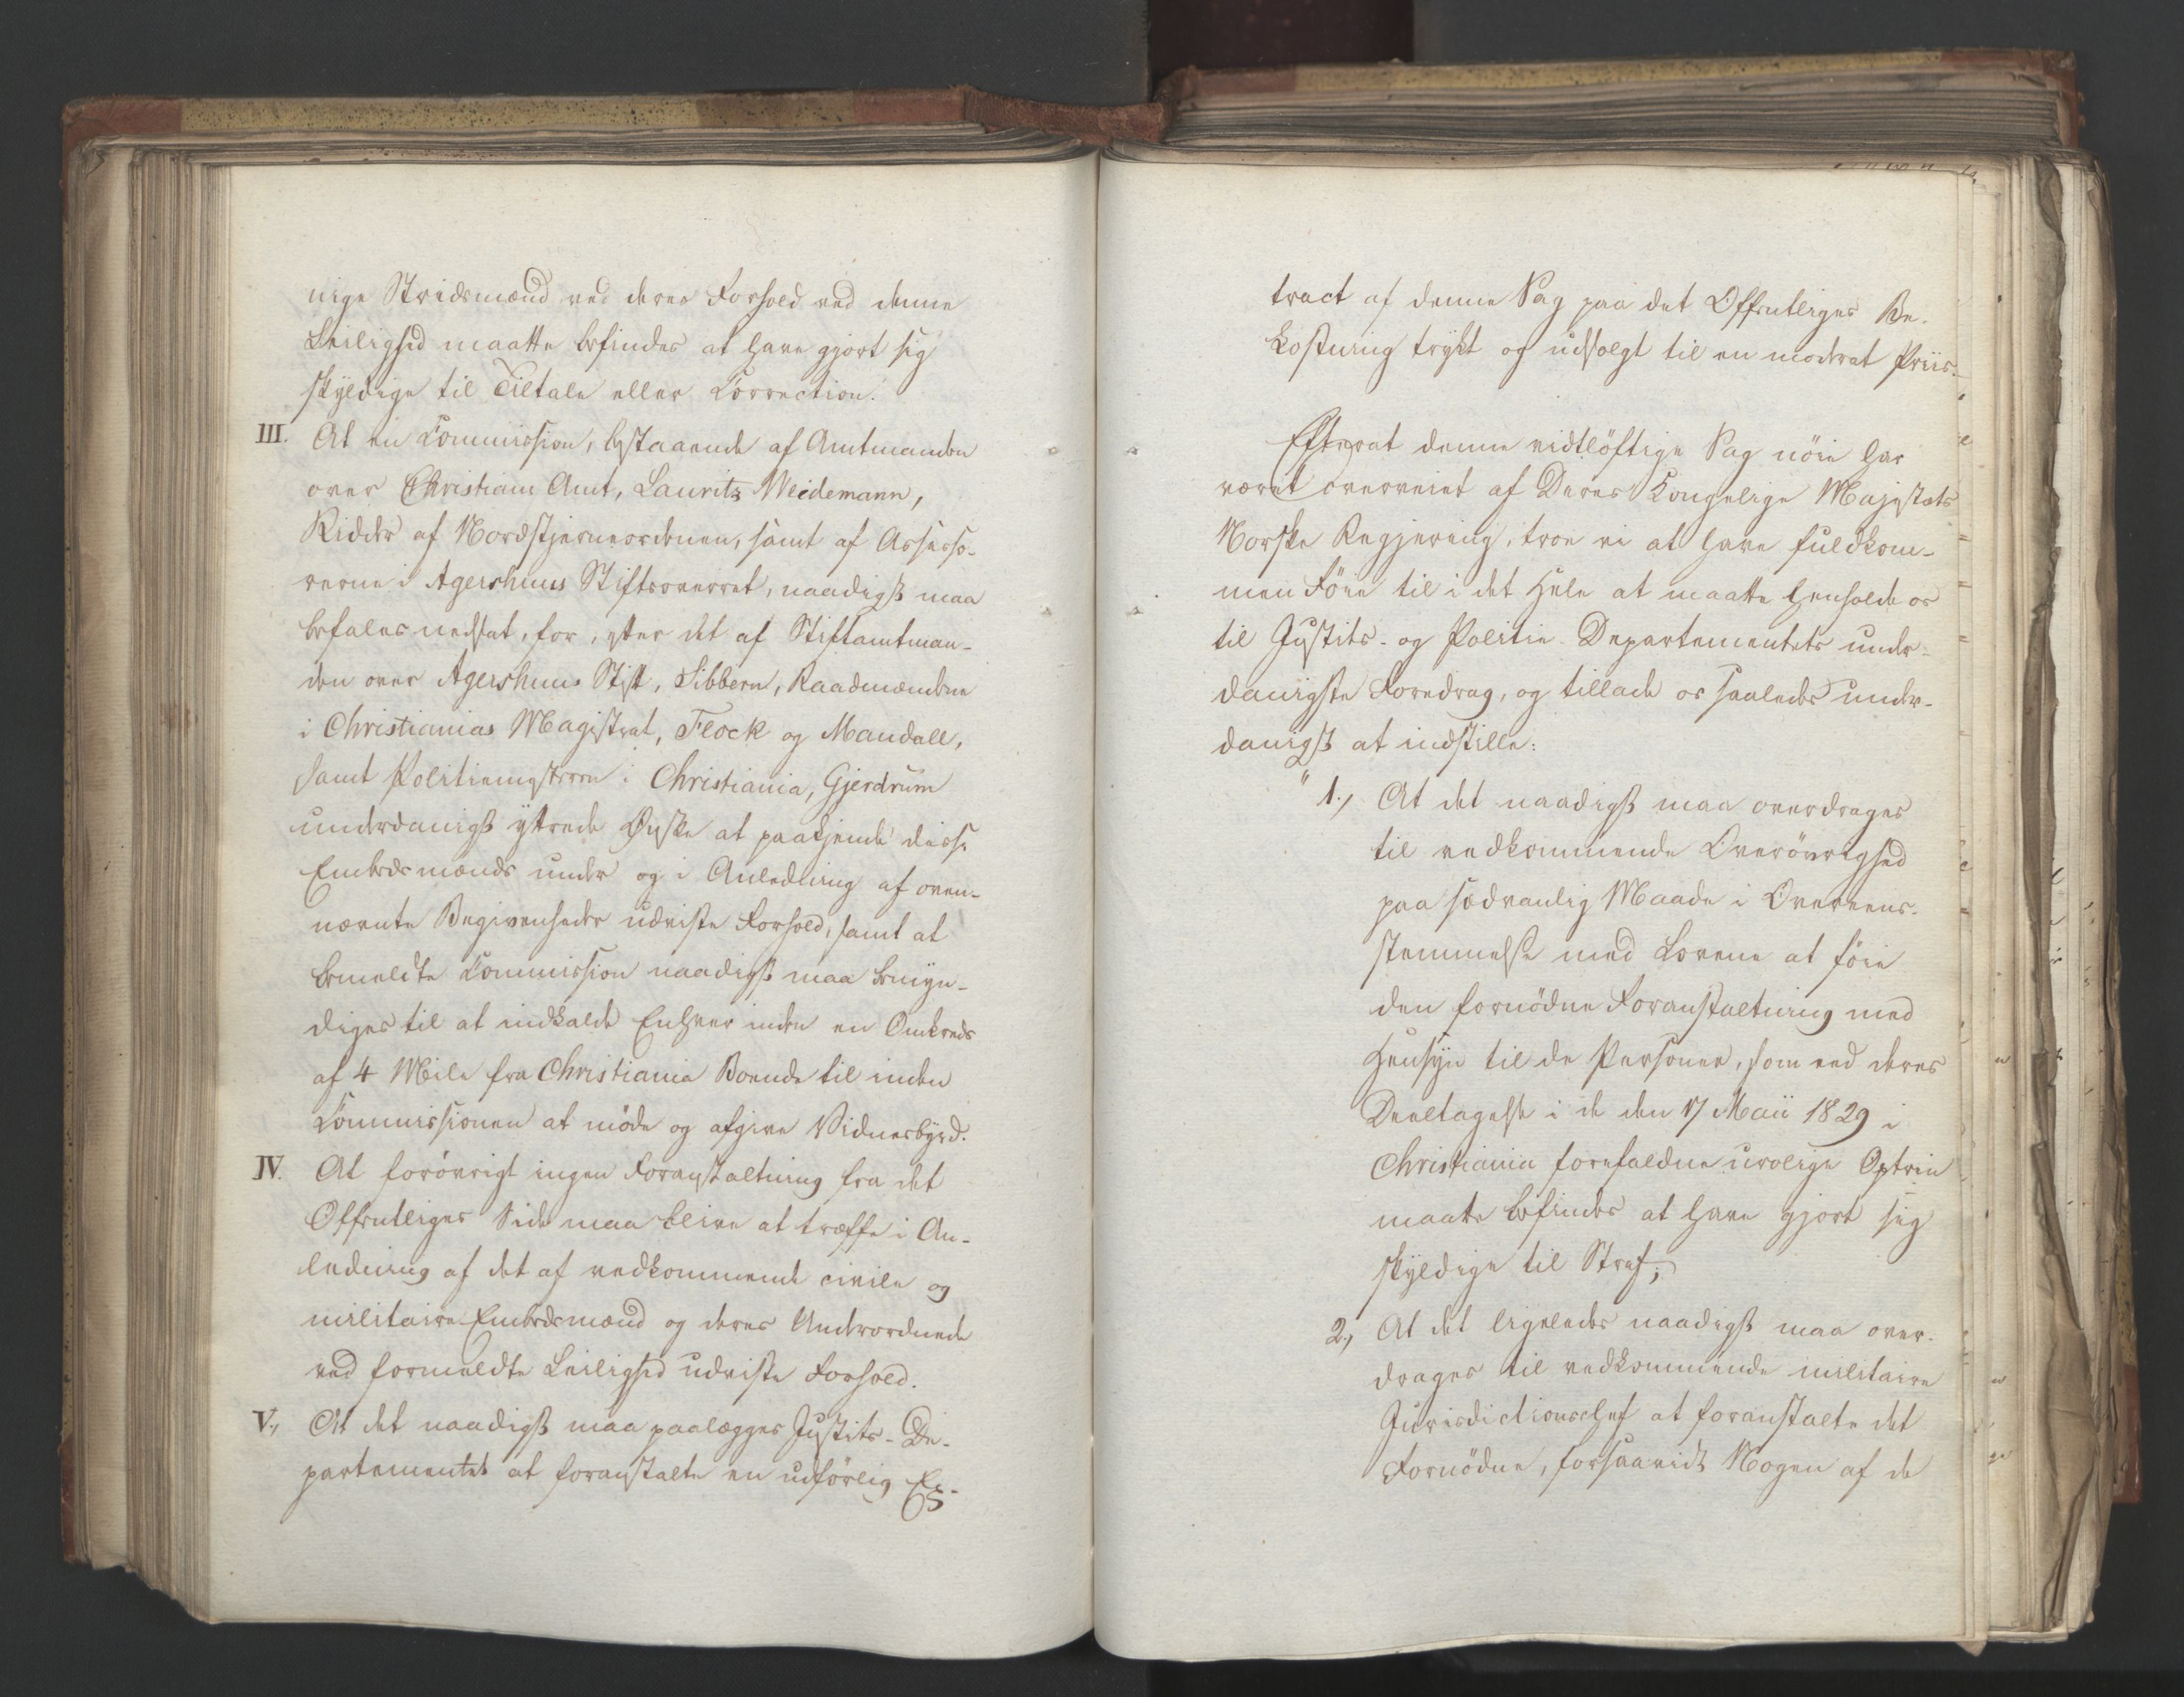 nige Stridsmænd ved deres Forhold ved denne
Leilighed maatte befindes at have gjort sig
skyldige til Tiltale eller Correction.
III. At en Commission, bestaaende af Amtmanden
over Christians Amt, Lauritz Weidemann,
Ridder af Nordstjerneordenen, samt af Assesso-
rerne i Agershuus Stiftsoverret, naadigst maa
befales nedsat, for, efter det af Stiftamtman-
den over Agershuus Stift, Sibbern, Raadmændene
i Christianias Magistrat, Flock og Mandall,
samt Politiemesteren i Christiania, Gjerdrum
underdanigst yttrede Ønske at paakjende disse
Embedsmænds under og i Anledning af oven-
nævnte Begivenheder udviste Forhold, samt at
bemeldte Commission naadigst maa bemyn-
diges til at indkalde Enhver inden en Omkreds
af 4 Mile fra Christiania Boende til inden
Commissionen at møde og afgive Vidnesbyrd.
IV. At forøvrigt ingen Foranstaltning fra det
Offentliges Side maa blive at træffe i An-
ledning af det af vedkommende civile og
militaire Embedsmænd og deres Underordnede
ved formeldte Leilighed udviste Forhold.
V., At det naadigst maa paalægges Justits-De-
partementet at foranstalte en udførlig Ex-
tract af denne Sag paa det Offentliges Be-
kostning trykt og udsolgt til en moderat Priis.
Efterat denne vidtløftige Sag nøie har
været overveiet af Deres Kongelige Majestæts
Norske Regjering, troe vi at have fuldkom-
men Føie til i det Hele at maatte henholde os
til Justits- og Politie-Departementets under-
danigste Foredrag, og tillade os saaledes under-
danigst at indstille:
"1., At det naadigst maa overdrages
til vedkommende Overøvrighed
paa sædvanlig Maade i Overeens-
stemmelse med Lovene at føie
den fornødne Foranstaltning med
Hensyn til de Personer, som ved deres
Deeltagelse i de den 17 Maii 1829 i
Christiania forefaldne urolige Optrin
maatte befindes at have gjort sig
skyldige til Straf;
2., At det ligeledes naadigst maa over-
drages til vedkommende militaire
Jurisdictionschef at foranstalte det
Fornødne, forsaavidt Nogen af de